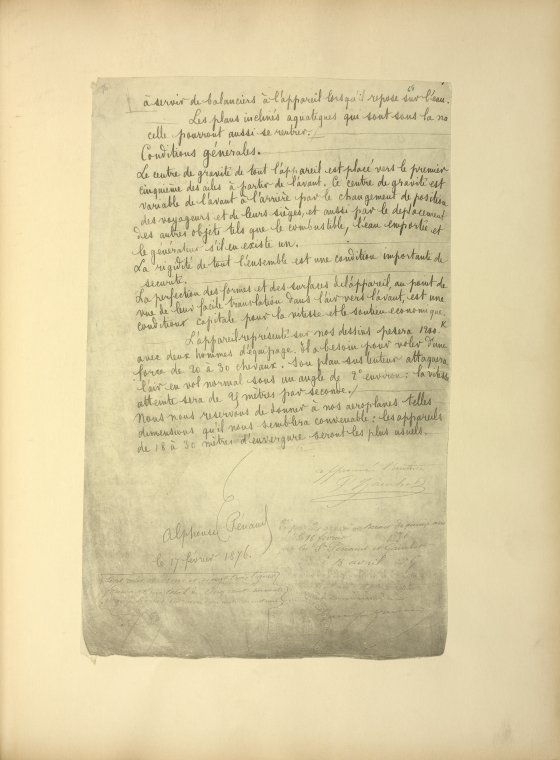 à servir de balanciers à l'appareil lorsqu'il repose sur l'eau.
Les plans inclinés aquatiques qui sont sous la na
celle pourront aussi se rentrer.
Conditions générales.
Le centre de gravité de tout l'appareil est placé vers le premier
cinquième des ailes à partir de l'avant. Ce centre de gravité est
variable de l'avant à l'arrière par le changement de position
des voyageurs et de leurs sièges, et aussi par le déplacement
des autres objets tels que le combustible, l'eau emportée et
le générateur s'il en existe un.
La rigidité de tout l'ensemble est une condition importante de
securité.
La perfection des formes et des surfaces de l'appareil, au point de
vue de leur facile translation dans l'air vers l'avant, est une
condition capitale pour la vitesse et le soutien économique.
L'appareil représenté sur nos dessins pesera 1200 K
avec deux hommes d'équipage. Il a besoin pour voler d'une
force de 20 à 30 chevaux. Son plan sustenteur attaquera
l'air en vol normal sous un angle de 2° environ: la vitesse
atteinte sera de 25 mètres par seconde.
Nous nous reservons de donner à nos aeroplanes telles
dimensions qu'il nous semblera convenable: les appareils
de 18 à 30 mètres d'envergure seront les plus usuels.
P. Gauchot
Alphonse Pénaud
le 17 février 1876.